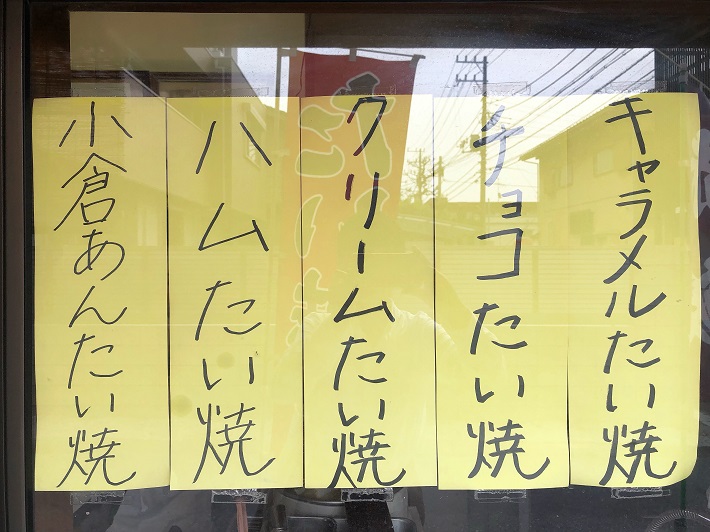 キャラメルたい焼
チョコたい焼
クリームたい焼
ハムたい焼
小倉あんたい焼